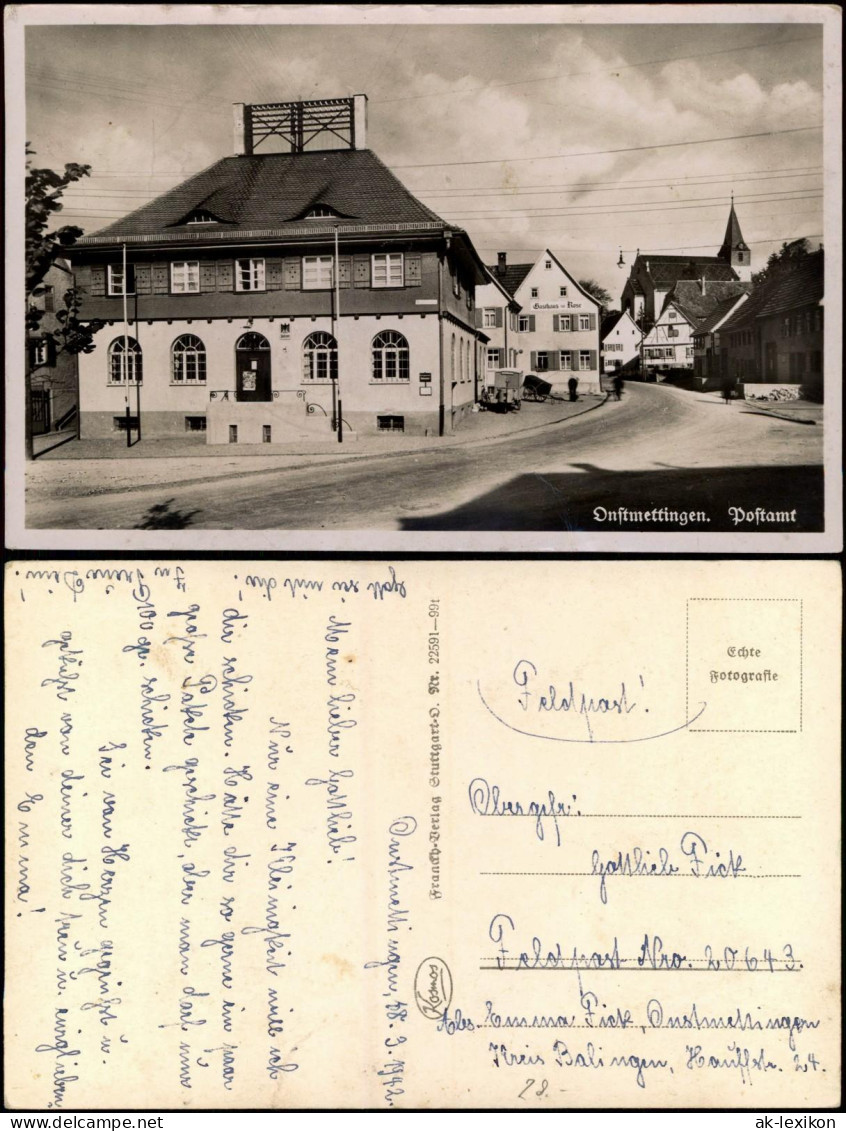 Gasthaus z. Rose
Onstmettingen. Postamt
Onstmettingen, 18. 3. 1942.
Mein lieber Gottlieb!
Nur eine Kleinigkeit will ich
dir schicken. Hätte dir so gerne ein paar
große Pakete geschickt, aber man darf nur
100 gr. schicken.
Sei von Herzen gegrüßt u.
geküßt von deiner dich treu u. ewiglieben-
den Emma!
Gott sei mit dir!
Franckh-Verlag Stuttgart-O. Nr. 22591–99t
Kosmos
Echte
Fotografie
Feldpost!
Obergefr:
Gottlieb Fick
Feldpost Nro. 20643.
Abs. Emma Fick, Onstmettingen
Kreis Balingen, Hauffstr. 24.
28.-
ak-lexikon